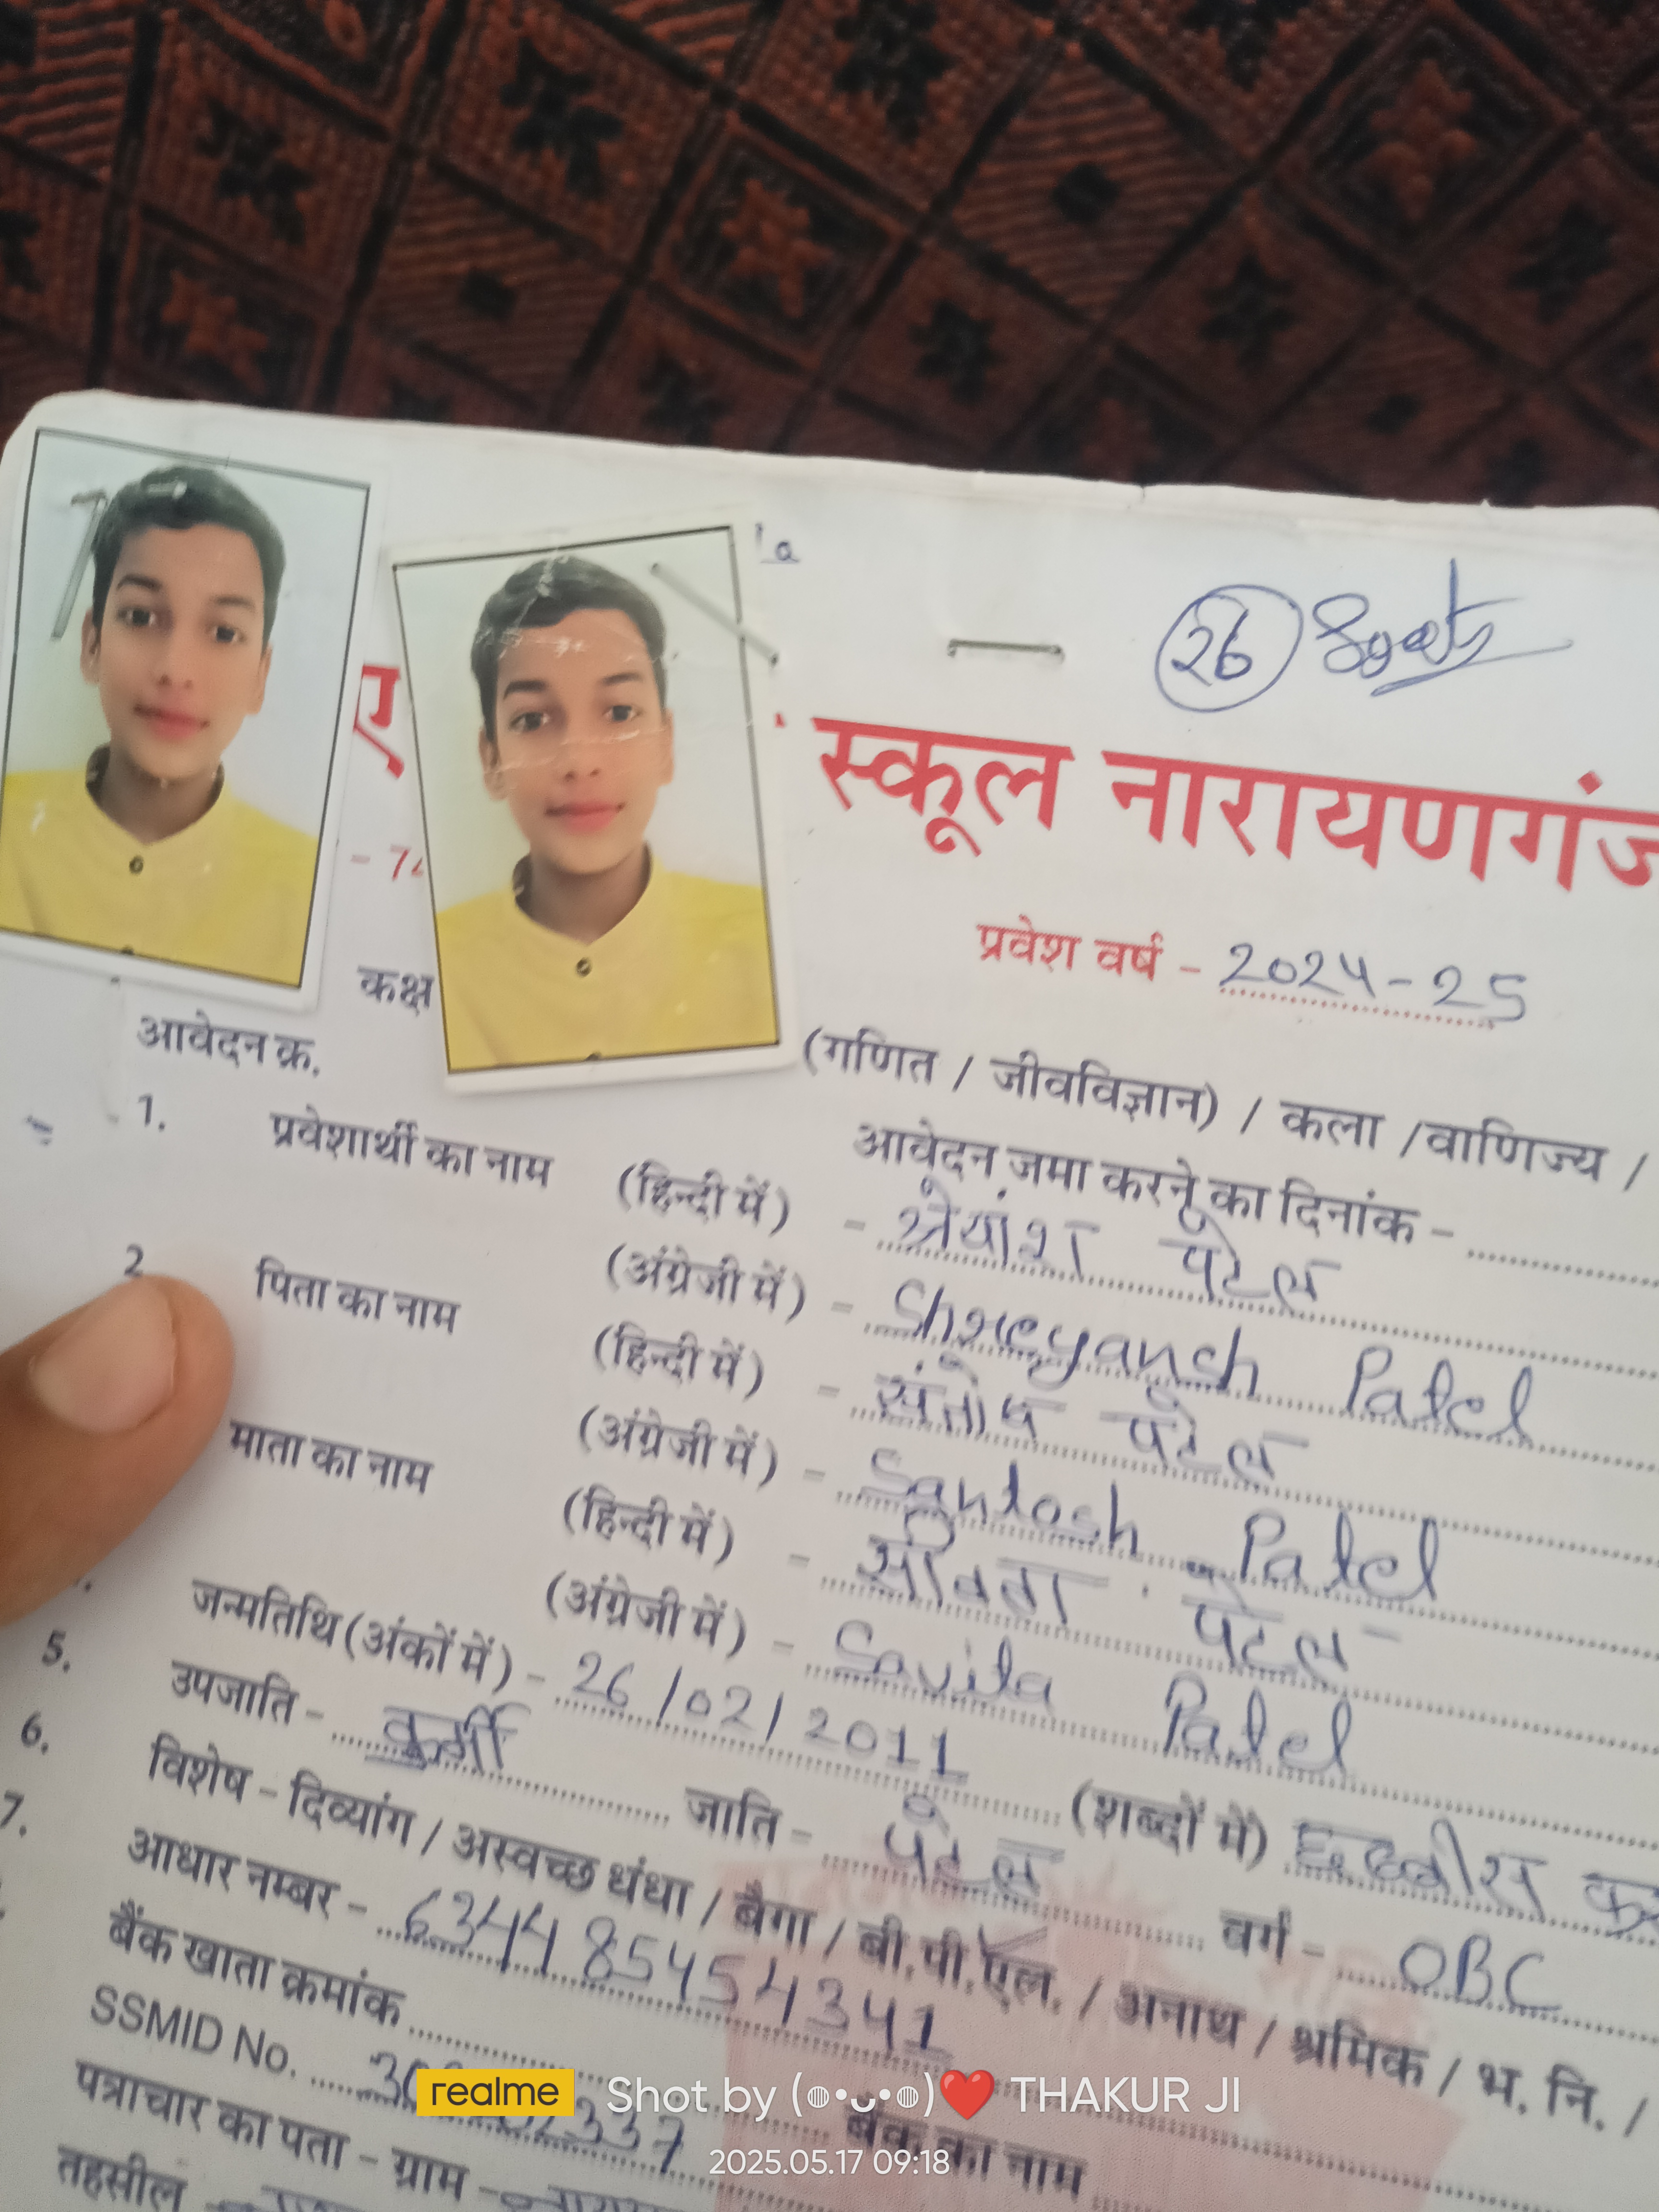 26
स्कूल नारायणगंज
- 74
प्रवेश वर्ष - 2024-25
कक्ष
(गणित / जीवविज्ञान) / कला /वाणिज्य /
आवेदन क्र.
आवेदन जमा करने का दिनांक -
1. प्रवेशार्थी का नाम (हिन्दी में) - श्रेयांश पटेल
(अंग्रेजी में) - Shreyansh Patel
2 पिता का नाम (हिन्दी में) - संतोष पटेल
(अंग्रेजी में) - Santosh Patel
माता का नाम (हिन्दी में) - पटेल
(अंग्रेजी में) - Savita Patel
जन्मतिथि (अंकों में) - 26/02/2011 (शब्दों में) छब्बीस
5. उपजाति - कुर्मी जाति - पटेल वर्ग - OBC
6. विशेष - दिव्यांग / अस्वच्छ धंधा / बैगा / बी.पी.एल. / अनाथ / श्रमिक / भ. नि. /
7. आधार नम्बर - 634485454341
बैंक खाता क्रमांक
बैंक का नाम
SSMID No.
पत्राचार का पता - ग्राम -
तहसील
realme Shot by ❤️ THAKUR JI
2025.05.17 09:18